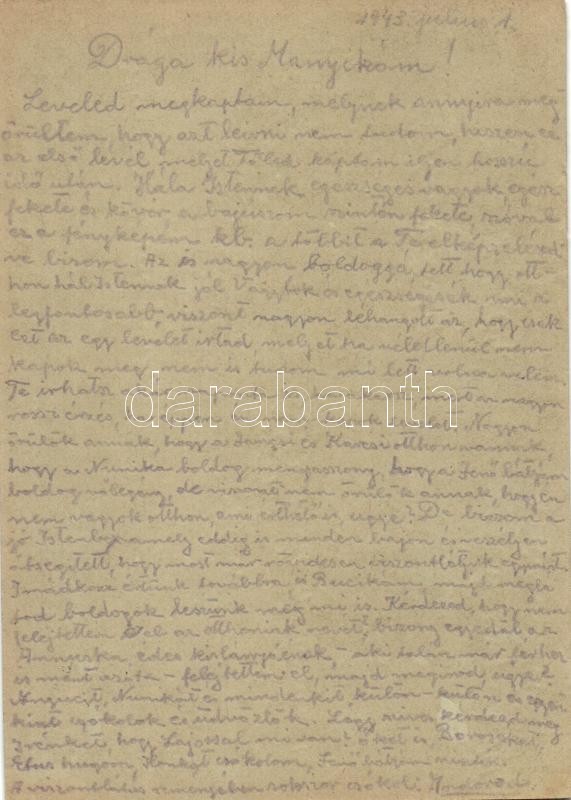 1943. julius 1.
Drága kis Manyikám!
Leveled megkaptam, melynek annyira meg
örültem, hogy azt leirni nem tudom, hiszen ez
az első levél melyet Tőled kaptam ilyen hosszú
idő után. Hála Istennek egészséges vagyok, egész
fekete és kövér, a bajuszom szintén fekete, szóval
ez a fényképem kb. a többit a Te elképzelésed
re bizom. Az is nagyon boldoggá tett, hogy ott-
hon hál Istennek jól Vagytok és egészségesek ami a
legfontosabb viszont nagyon lehangolt az, hogy csak
ezt az egy levelet irtad melyet ha véletlenül nem
kapok meg nem is tudom mi lett volna velem.
Te irhatsz mert nagyon
rossz érzés, Nagyon
örülök annak, hogy a Jancsi és Karcsi otthon vannak,
hogy a Nunika boldog menyasszony, hogy a Jenő bátyám
boldog vőlegény, de viszont nem örülök annak, hogy én
nem vagyok otthon, ami érthető is, ugye? De bizom a
jó Istenben amely eddig is minden bajon és veszélyen
átsegitett, hogy most már rövidesen viszontlátjuk egymást.
Imádkozz értünk továbbra is Bucikám, majd megla
tod boldogok leszünk még mi is. Kérdezed, hogy nem
felejtettem el az otthoniak nevét, bizony egyedül az
Annuska édes kislányának - aki talán már férhez
is ment azóta - felejtettem el, majd megirod, ugye?
Anyucit, Nunikát és mindenkit külön-külön és egyen
kint csókolok és üdvözlök. Légy szives kérdezd meg
Irénkét, hogy Lajossal mi van? Őket is, Borcsákat,
Etus hugom, Ilonkát csókolom, Jenő bátyám
A viszontlátás reményében sokszor csókol: Andorod.
darabanth